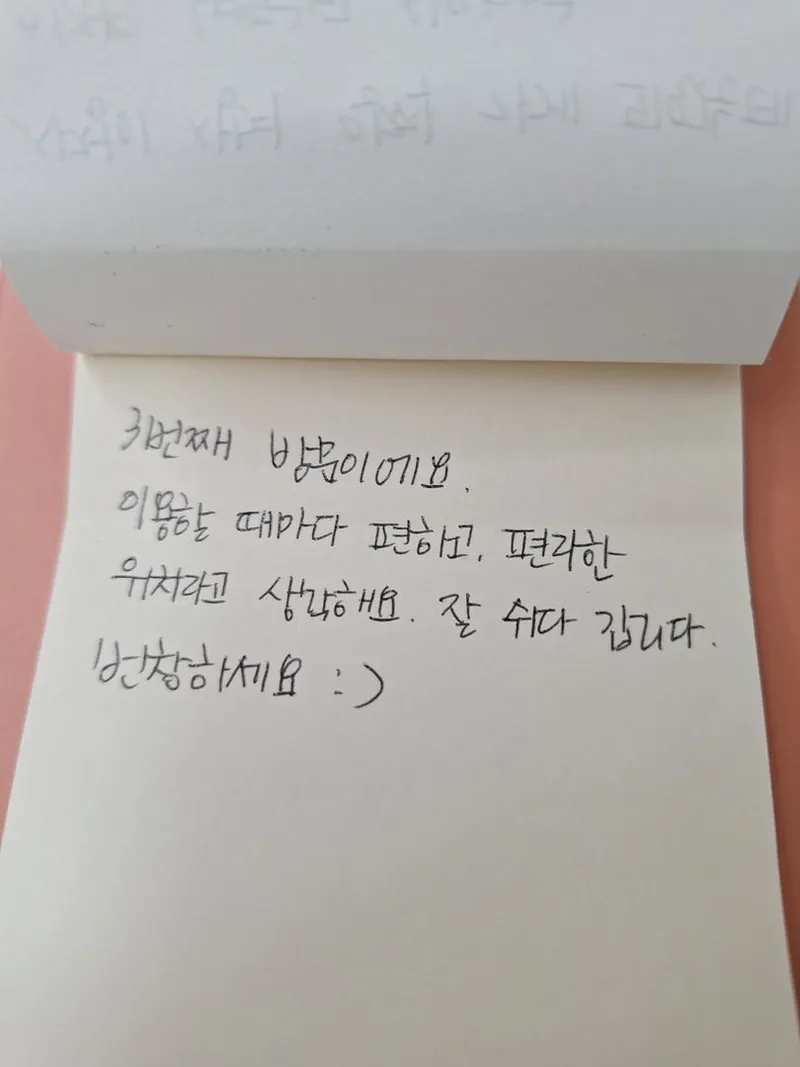 3번째 방문이에요.
이용할 때마다 편하고, 편라한
위치라고 생각해요. 잘 쉬다 갑니다.
번창하세요 :)